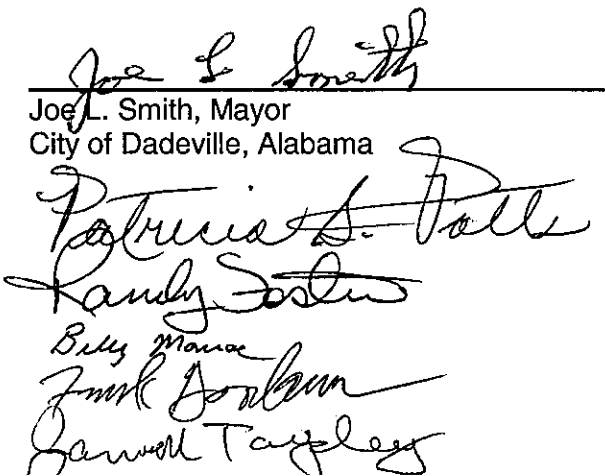 Joe L. Smith
Joe L. Smith, Mayor
City of Dadeville, Alabama
Patricia G. Potts
Randy Foster
Billy Monroe
Frank Goodman
Tarpley